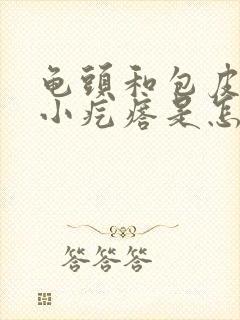 龟頭和包皮
小疙瘩是怎
答答答